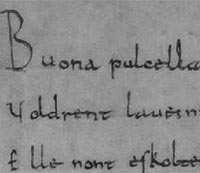 Buona pulcella
Voldrent lauein
Elle nont eſkolte